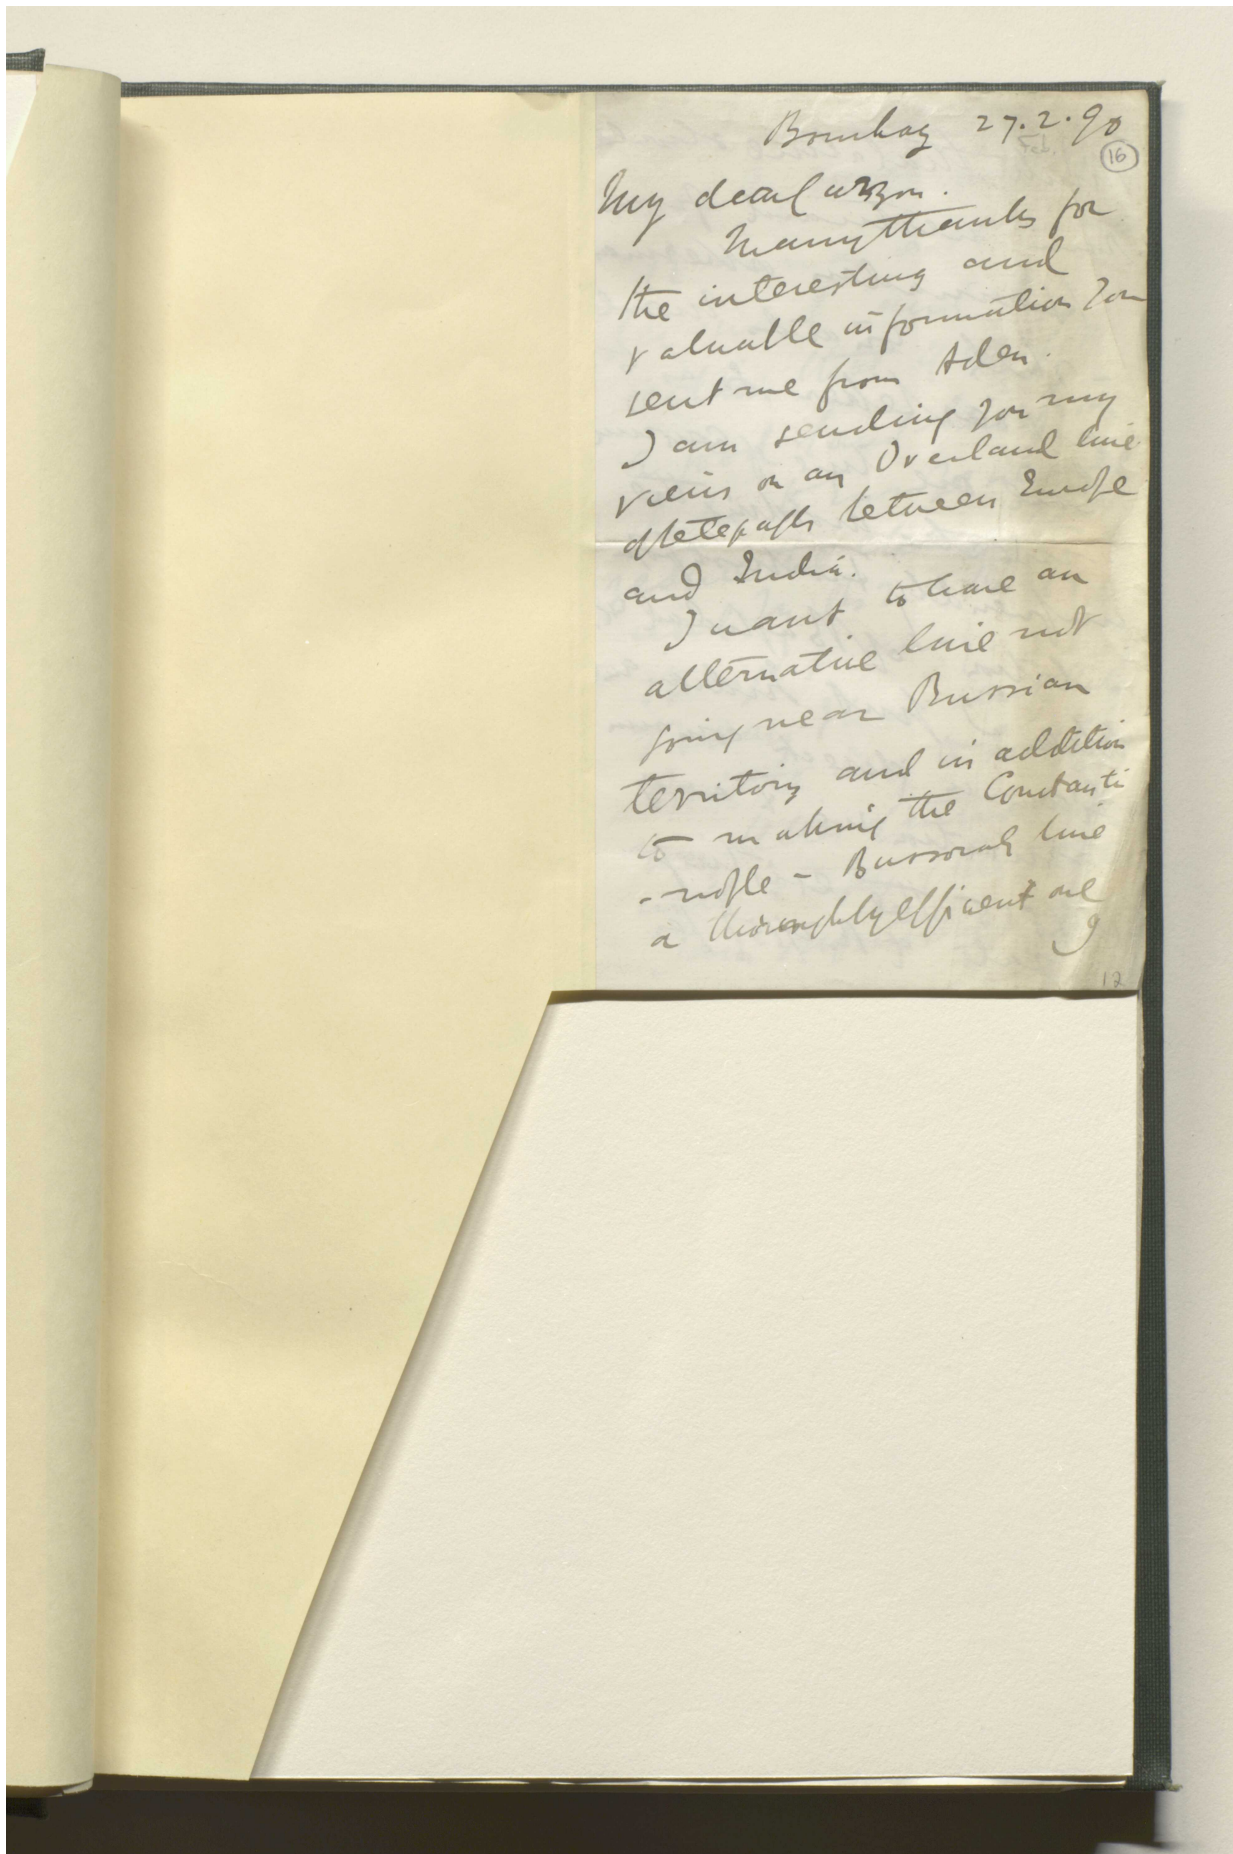 Bombay 27.2.90
Feb.
16
My dear Curzon.
Many thanks for
the interesting and
valuable information you
sent me from Aden.
I am sending you my
views on an Overland line
of telegraph between Europe
and India.
I want to have an
alternative line not
going near Russian
territory and in addition
to making the Constanti
-nople - Bussorah line
a thoroughly efficient one
12